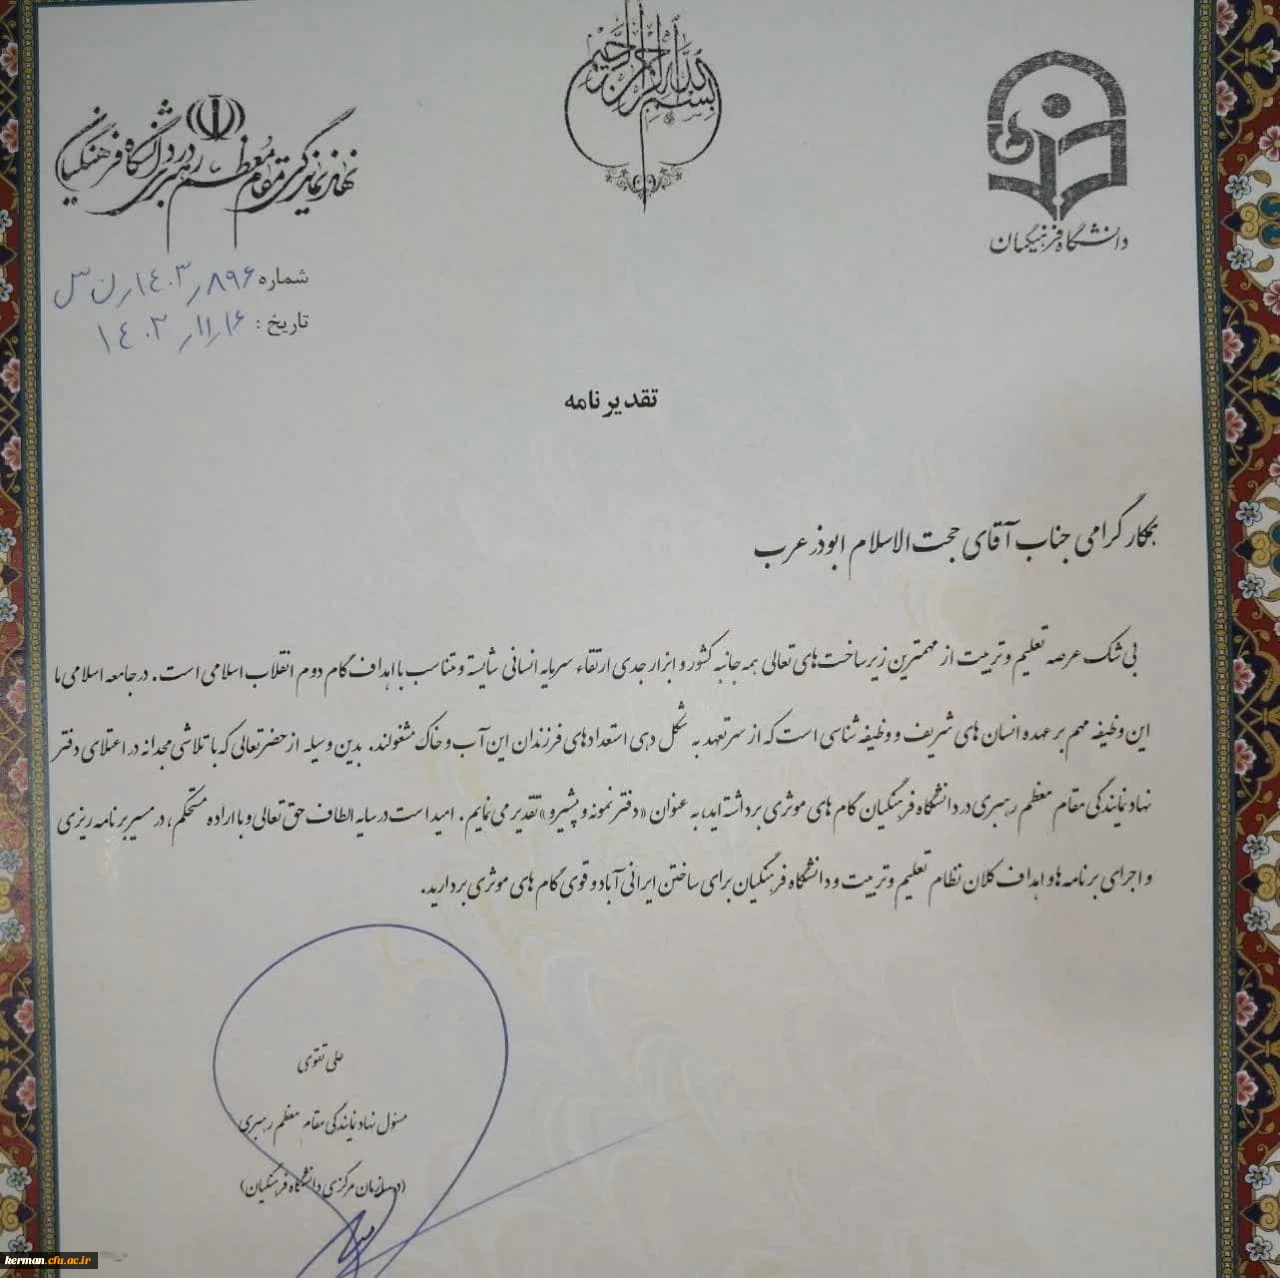 بسم الله الرحمن الرحیم
دانشگاه فرهنگیان
نهاد نمایندگی مقام معظم رهبری در دانشگاه فرهنگیان
شماره ۸۹۶/۱۴۰۳/ن س
تاریخ : ۱۶/۱۱/۱۴۰۳
تقدیرنامه
همکار گرامی جناب آقای حجت الاسلام ابوذر عرب
بی شک عرصه تعلیم و تربیت از مهمترین زیرساخت های تعالی همه جانبه کشور و ابزار جدی ارتقاء سرمایه انسانی شایسته و متناسب با اهداف گام دوم انقلاب اسلامی است. در جامعه اسلامی ما
این وظیفه مهم بر عهده انسان های شریف و وظیفه شناسی است که از سر تعهد به شکل دهی استعدادهای فرزندان این آب و خاک مشغولند. بدین وسیله از حضرتعالی که با تلاشی مجدانه در اعتلای دفتر
نهاد نمایندگی مقام معظم رهبری در دانشگاه فرهنگیان گام های موثری برداشته اید، به عنوان «دفتر نمونه و پیشرو» تقدیر می نمایم. امید است در سایه الطاف حق تعالی و با اراده مستحکم، در مسیر برنامه ریزی
و اجرای برنامه ها و اهداف کلان نظام تعلیم و تربیت و دانشگاه فرهنگیان برای ساختن ایرانی آباد و قوی گام های موثری بردارید.
علی تقوی
مسئول نهاد نمایندگی مقام معظم رهبری
(در سازمان مرکزی دانشگاه فرهنگیان)
kerman.cfu.ac.ir